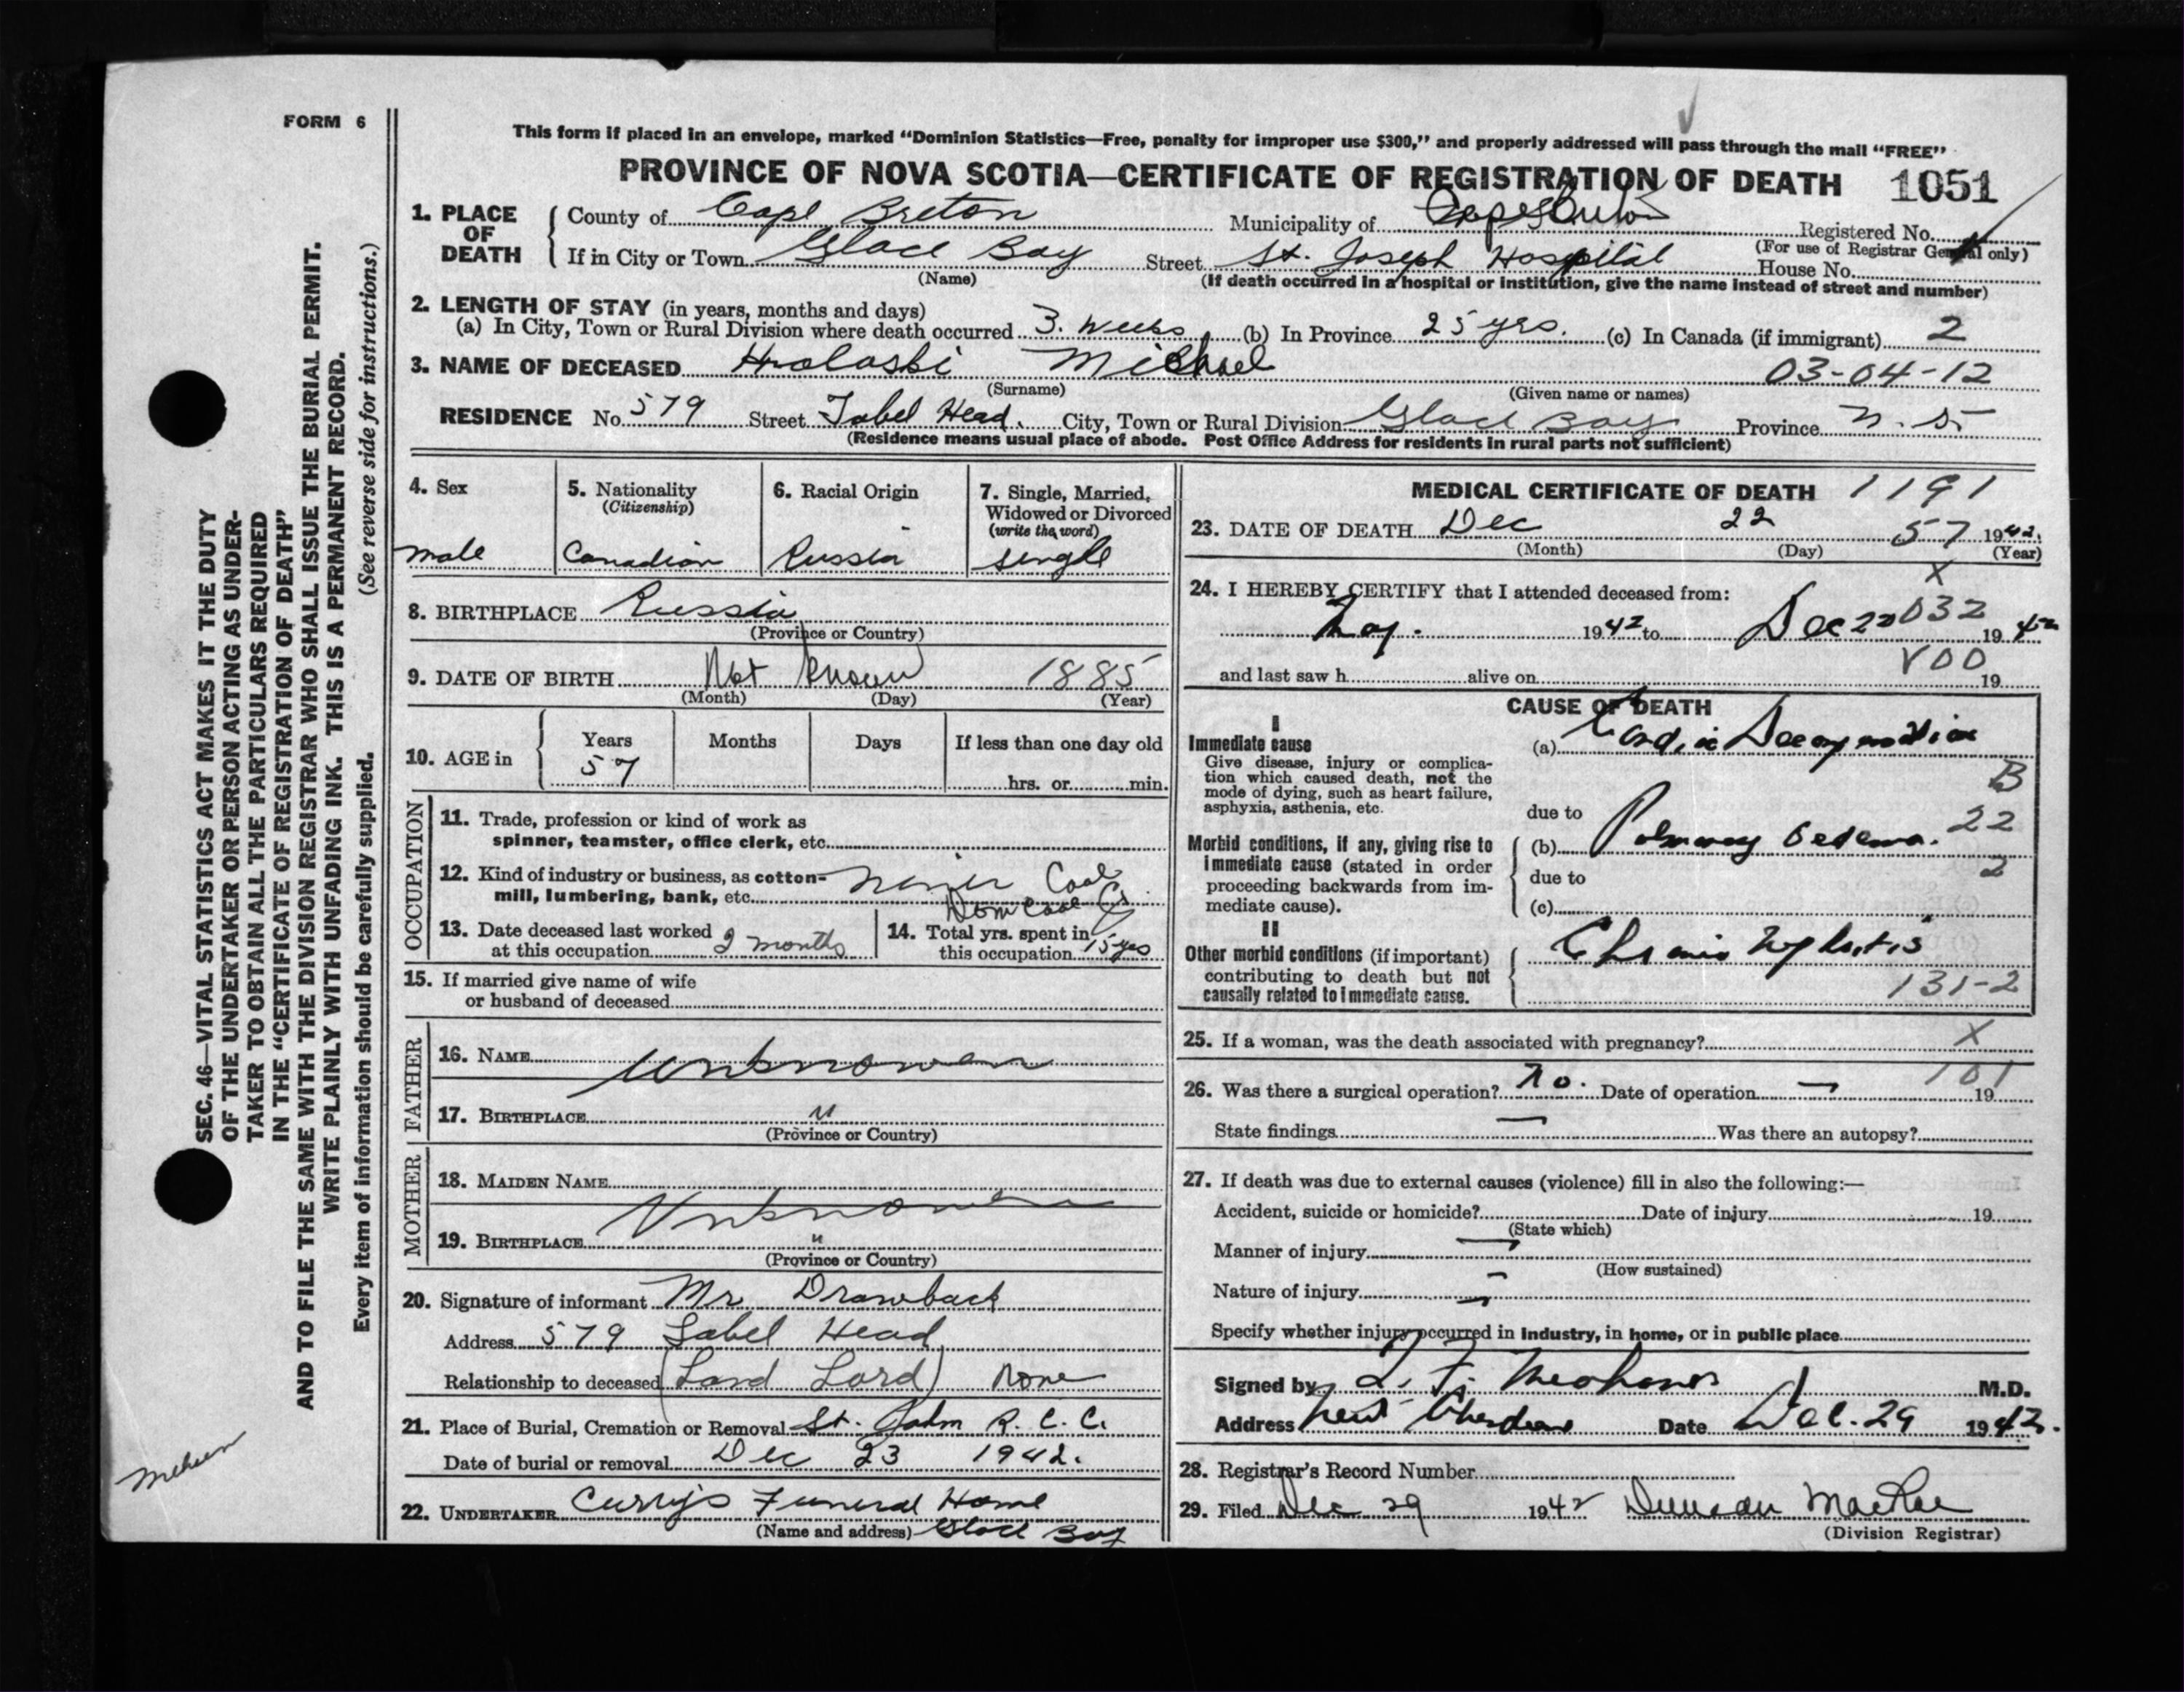 FORM 6
This form if placed in an envelope, marked “Dominion Statistics—Free, penalty for improper use $300,” and properly addressed will pass through the mail “FREE”
PROVINCE OF NOVA SCOTIA—CERTIFICATE OF REGISTRATION OF DEATH 1051
1. PLACE OF DEATH
County of Cape Breton Municipality of Cape Breton Registered No.
(For use of Registrar General only)
If in City or Town Glace Bay Street St. Joseph Hospital House No.
(Name) (If death occurred in a hospital or institution, give the name instead of street and number)
2. LENGTH OF STAY (in years, months and days)
(a) In City, Town or Rural Division where death occurred 3. weeks (b) In Province 25 yrs. (c) In Canada (if immigrant) 2
3. NAME OF DECEASED Hrolaski Michael 03-04-12
(Surname) (Given name or names)
RESIDENCE No 579 Street Tabel Head. City, Town or Rural Division Glace Bay Province N. S.
(Residence means usual place of abode. Post Office Address for residents in rural parts not sufficient)
4. Sex
male
5. Nationality
(Citizenship)
Canadian
6. Racial Origin
Russia
7. Single, Married,
Widowed or Divorced
(write the word)
single
8. BIRTHPLACE Russia
(Province or Country)
9. DATE OF BIRTH Not known 1885
(Month) (Day) (Year)
10. AGE in Years Months Days If less than one day old
57 hrs. or min.
OCCUPATION
11. Trade, profession or kind of work as
spinner, teamster, office clerk, etc.
12. Kind of industry or business, as cotton-
mill, lumbering, bank, etc. Coal
Dom Coal Co
13. Date deceased last worked
at this occupation 2 months
14. Total yrs. spent in
this occupation 15 yrs
15. If married give name of wife
or husband of deceased
FATHER
16. NAME Unknowen
17. BIRTHPLACE "
(Province or Country)
MOTHER
18. MAIDEN NAME Unknowen
19. BIRTHPLACE "
(Province or Country)
20. Signature of informant Mr Drawback
Address 579 Tabel Head
Relationship to deceased (Land Lord) None
21. Place of Burial, Cremation or Removal St. John R. C. C.
Date of burial or removal Dec 23 1942.
22. UNDERTAKER Curry's Funeral Home
(Name and address) Glace Bay
MEDICAL CERTIFICATE OF DEATH 1191
23. DATE OF DEATH Dec 22 57 1942.
(Month) (Day) (Year)
X
24. I HEREBY CERTIFY that I attended deceased from:
1942 to Dec 22 032 1942
and last saw h alive on 19 V00
CAUSE OF DEATH
I
Immediate cause
Give disease, injury or complica-
tion which caused death, not the
mode of dying, such as heart failure,
asphyxia, asthenia, etc.
(a) Cardiac Decompensation
B
due to
Morbid conditions, if any, giving rise to
immediate cause (stated in order
proceeding backwards from im-
mediate cause).
(b) Pulmonary Oedema. 22
due to 2
(c)
II
Other morbid conditions (if important)
contributing to death but not
causally related to immediate cause.
Chronic Nephritis
131-2
25. If a woman, was the death associated with pregnancy? X
26. Was there a surgical operation? No. Date of operation — 19 101
State findings — Was there an autopsy?
27. If death was due to external causes (violence) fill in also the following:—
Accident, suicide or homicide? Date of injury 19
(State which)
Manner of injury —
(How sustained)
Nature of injury —
Specify whether injury occurred in industry, in home, or in public place
Signed by M.D.
Address New Aberdeen Date Dec. 29 1942.
28. Registrar's Record Number
29. Filed Dec 29 1942 Duncan MacRae
(Division Registrar)
SEC. 46—VITAL STATISTICS ACT MAKES IT THE DUTY
OF THE UNDERTAKER OR PERSON ACTING AS UNDER-
TAKER TO OBTAIN ALL THE PARTICULARS REQUIRED
IN THE “CERTIFICATE OF REGISTRATION OF DEATH”
AND TO FILE THE SAME WITH THE DIVISION REGISTRAR WHO SHALL ISSUE THE BURIAL PERMIT.
WRITE PLAINLY WITH UNFADING INK. THIS IS A PERMANENT RECORD.
Every item of information should be carefully supplied. (See reverse side for instructions.)